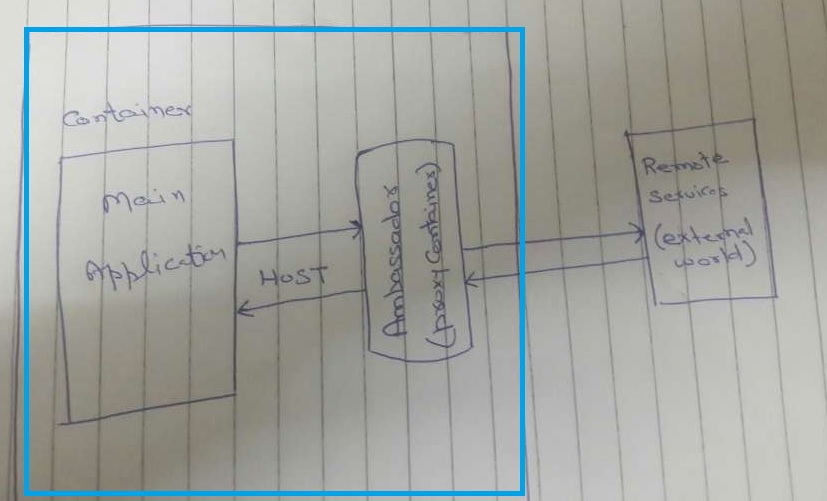 Container
Main
Application
HOST
Ambassador
(proxy Container)
Remote
Services
(external
world)